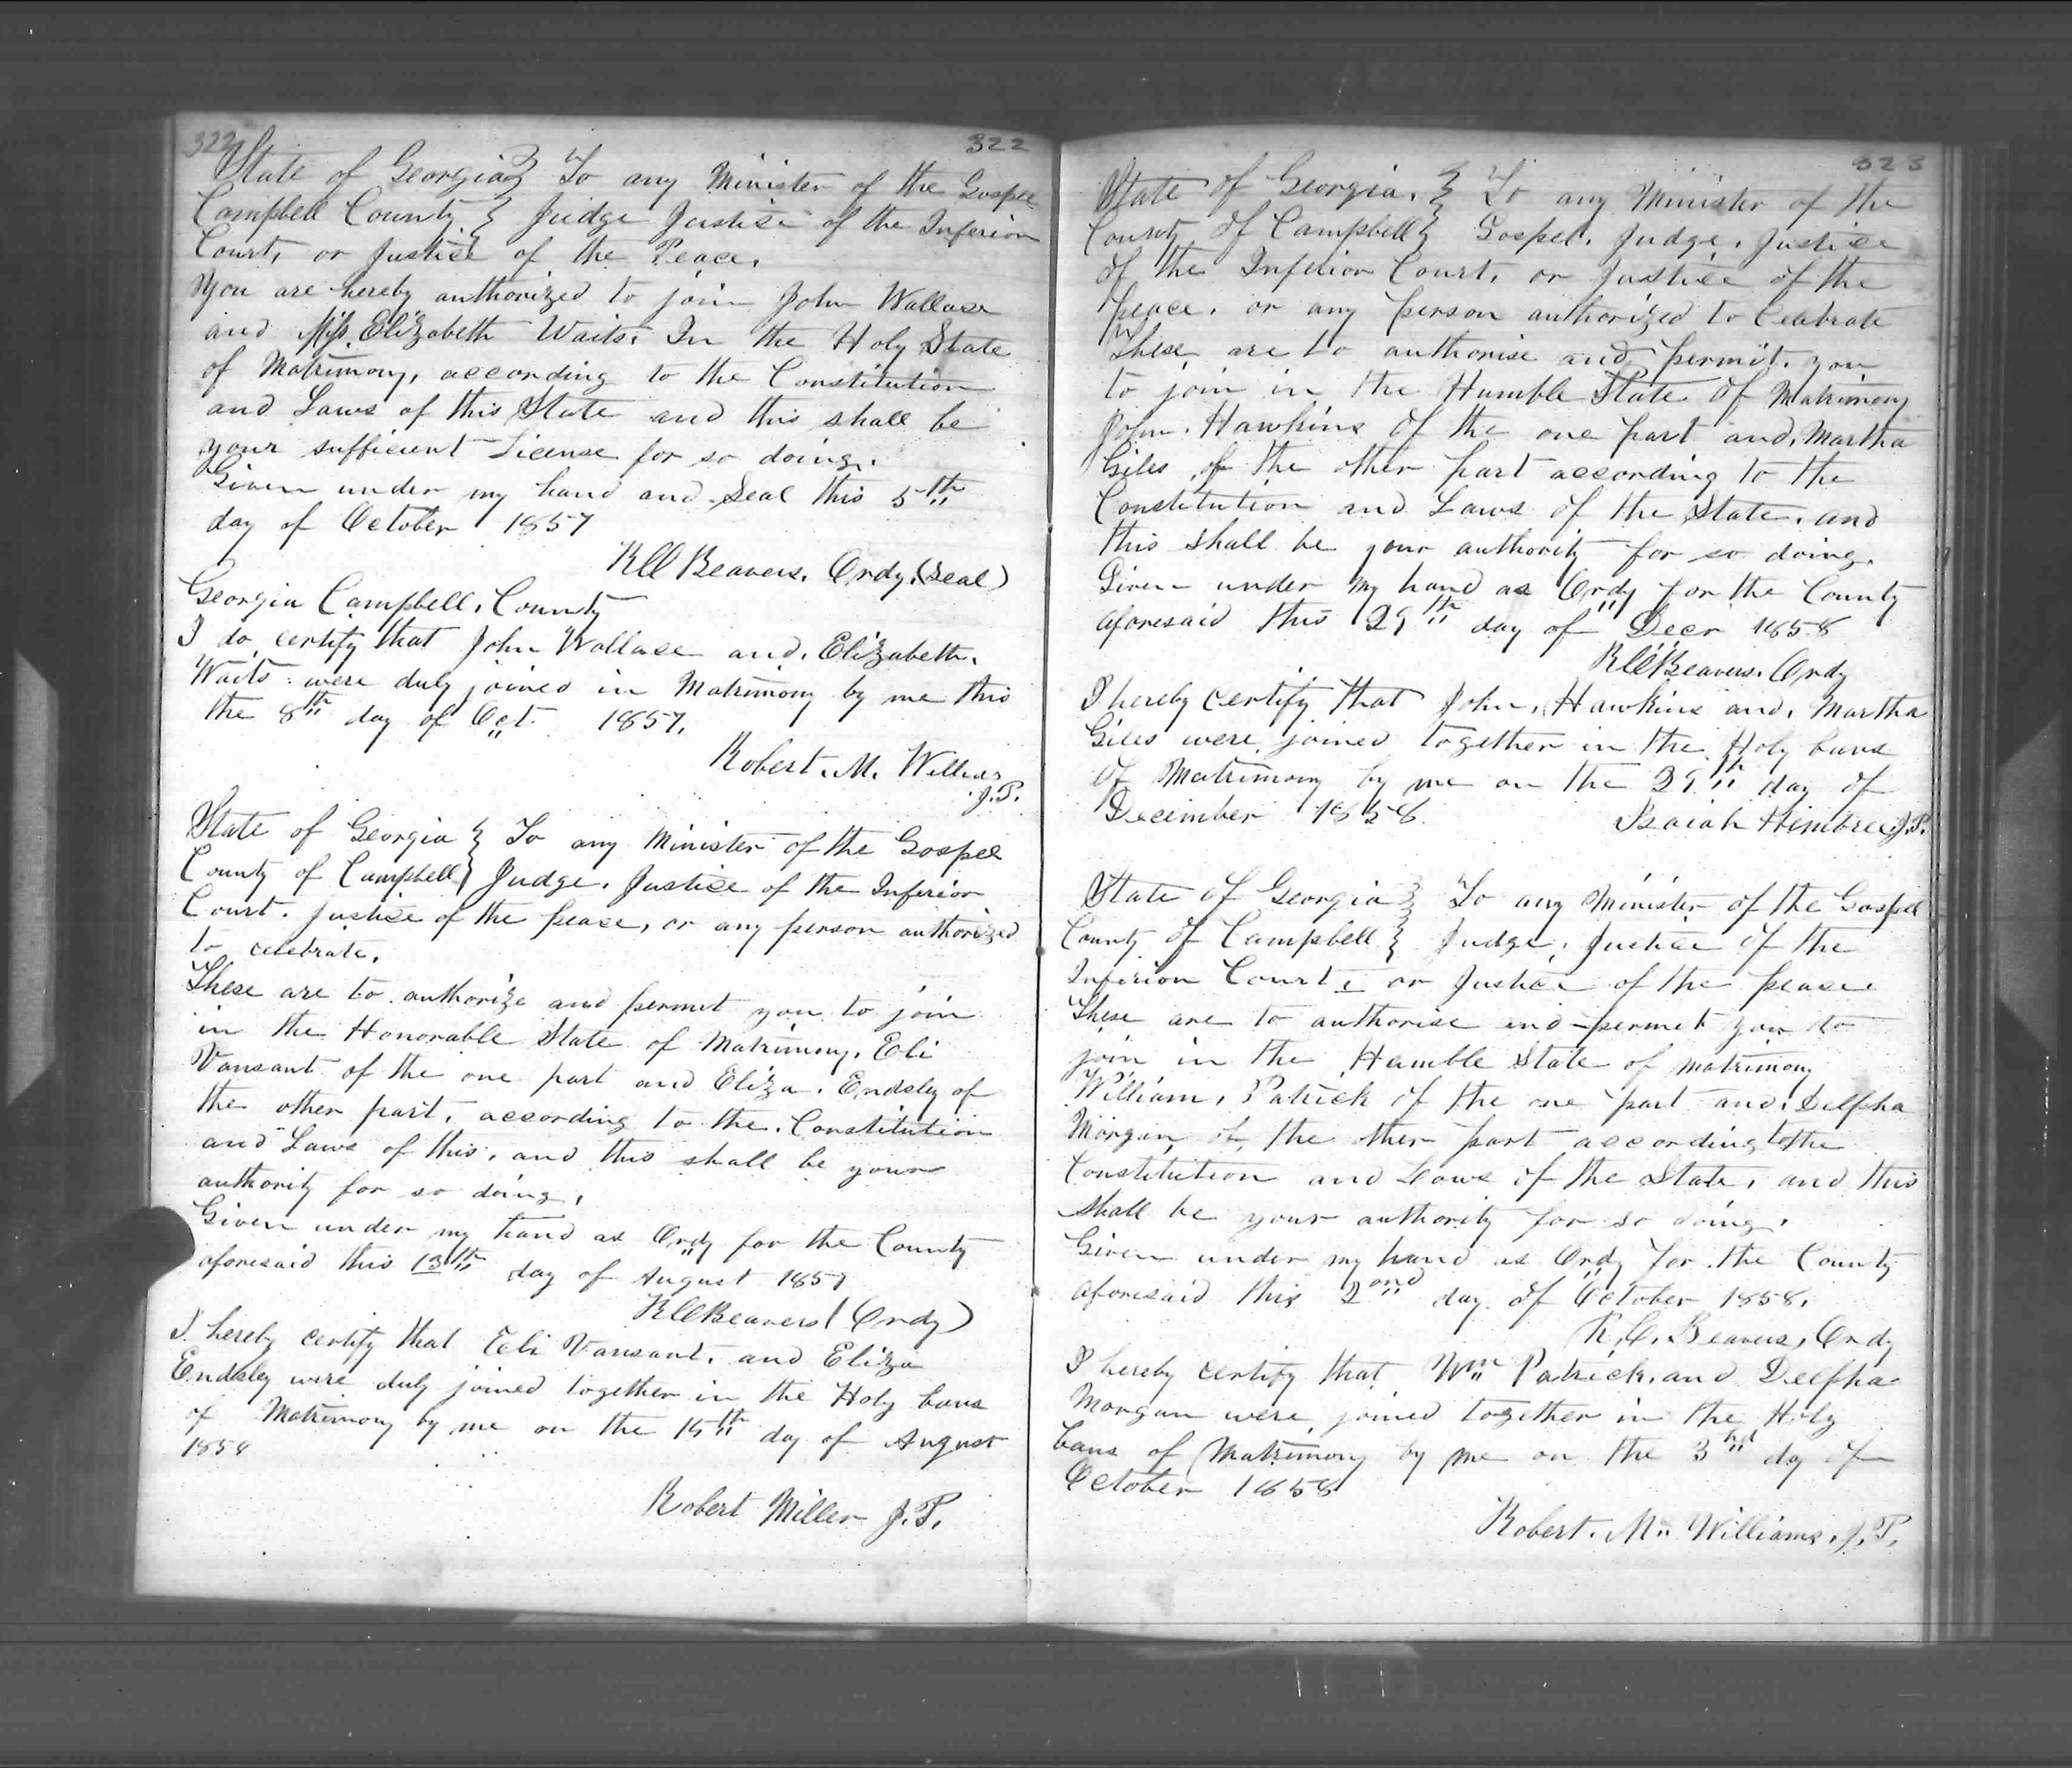 322 322
State of Georgia } To any Minister of the Gospel
Campbell County } Judge Justice of the Inferior
Court, or Justice of the Peace,
You are hereby authorized to join John Wallace
and Miss Elizabeth Waits. In the Holy State
of Matrimony, according to the Constitution
and Laws of this State and this shall be
your sufficient License for so doing.
Given under my hand and Seal this 5th
day of October 1857
R C Beavers. Ordy. (Seal)
Georgia Campbell, County
I do certify that John Wallace and Elizabeth
Waits were duly joined in Matrimony by me this
the 8th day of Oct. 1857.
Robert. M. Willias
J.P.
State of Georgia } To any Minister of the Gospel
County of Campbell } Judge. Justice of the Inferior
Court. Justice of the peace, or any person authorized
to celebrate.
These are to authorize and permit you to join
in the Honorable State of Matrimony. Eli
Vansant of the one part and Eliza. Endsley of
the other part, according to the Constitution
and Laws of this, and this shall be your
authority for so doing,
Given under my hand as Ordy for the County
aforesaid this 13th day of August 1857
R C Beavers (Ordy)
I hereby certify that Eli Vansant, and Eliza
Endsley were duly joined together in the Holy bans
of Matrimony by me on the 15th day of August
1858
Robert Miller J.P.
323
State of Georgia. } To any Minister of the
County of Campbell } Gospel. Judge. Justice
of the Inferior Court. or Justice of the
peace. or any person authorized to Celebrate
These are to authorise and permit. you
to join in the Humble State of Matrimony
John. Hawkins of the one part and. Martha
Giles of the other part according to the
Constitution and Laws of the State. and
this shall be your authority for so doing.
Given under my hand as Ordy for the County
aforesaid this 29th day of Decr 1858
R C Beavers. Ordy
I hereby certify that John. Hawkins and. Martha
Giles were joined together in the Holy bans
of Matrimony by me on the 29th day of
December 1858. Isaiah Hembree J.P.
State of Georgia } To any Minister of the Gospel
County of Campbell } Judge, Justice of the
Inferior Court, or Justice of the peace
These are to authorise and permit you to
join in the Humble State of matrimony
William, Patrick of the one part and, Delpha
Morgan, of, the other part according to the
Constitution and Laws of the State, and this
shall be your authority for so doing.
Given under my hand as Ordy for the County
aforesaid this 2ond day of October 1858.
R. C. Beavers, Ordy
I hereby certify that Wm Patrick, and Delpha
Morgan were joined together in the Holy
bans of Matrimony by me on the 3rd dy of
October 1858
Robert. M. Williams. J.P.